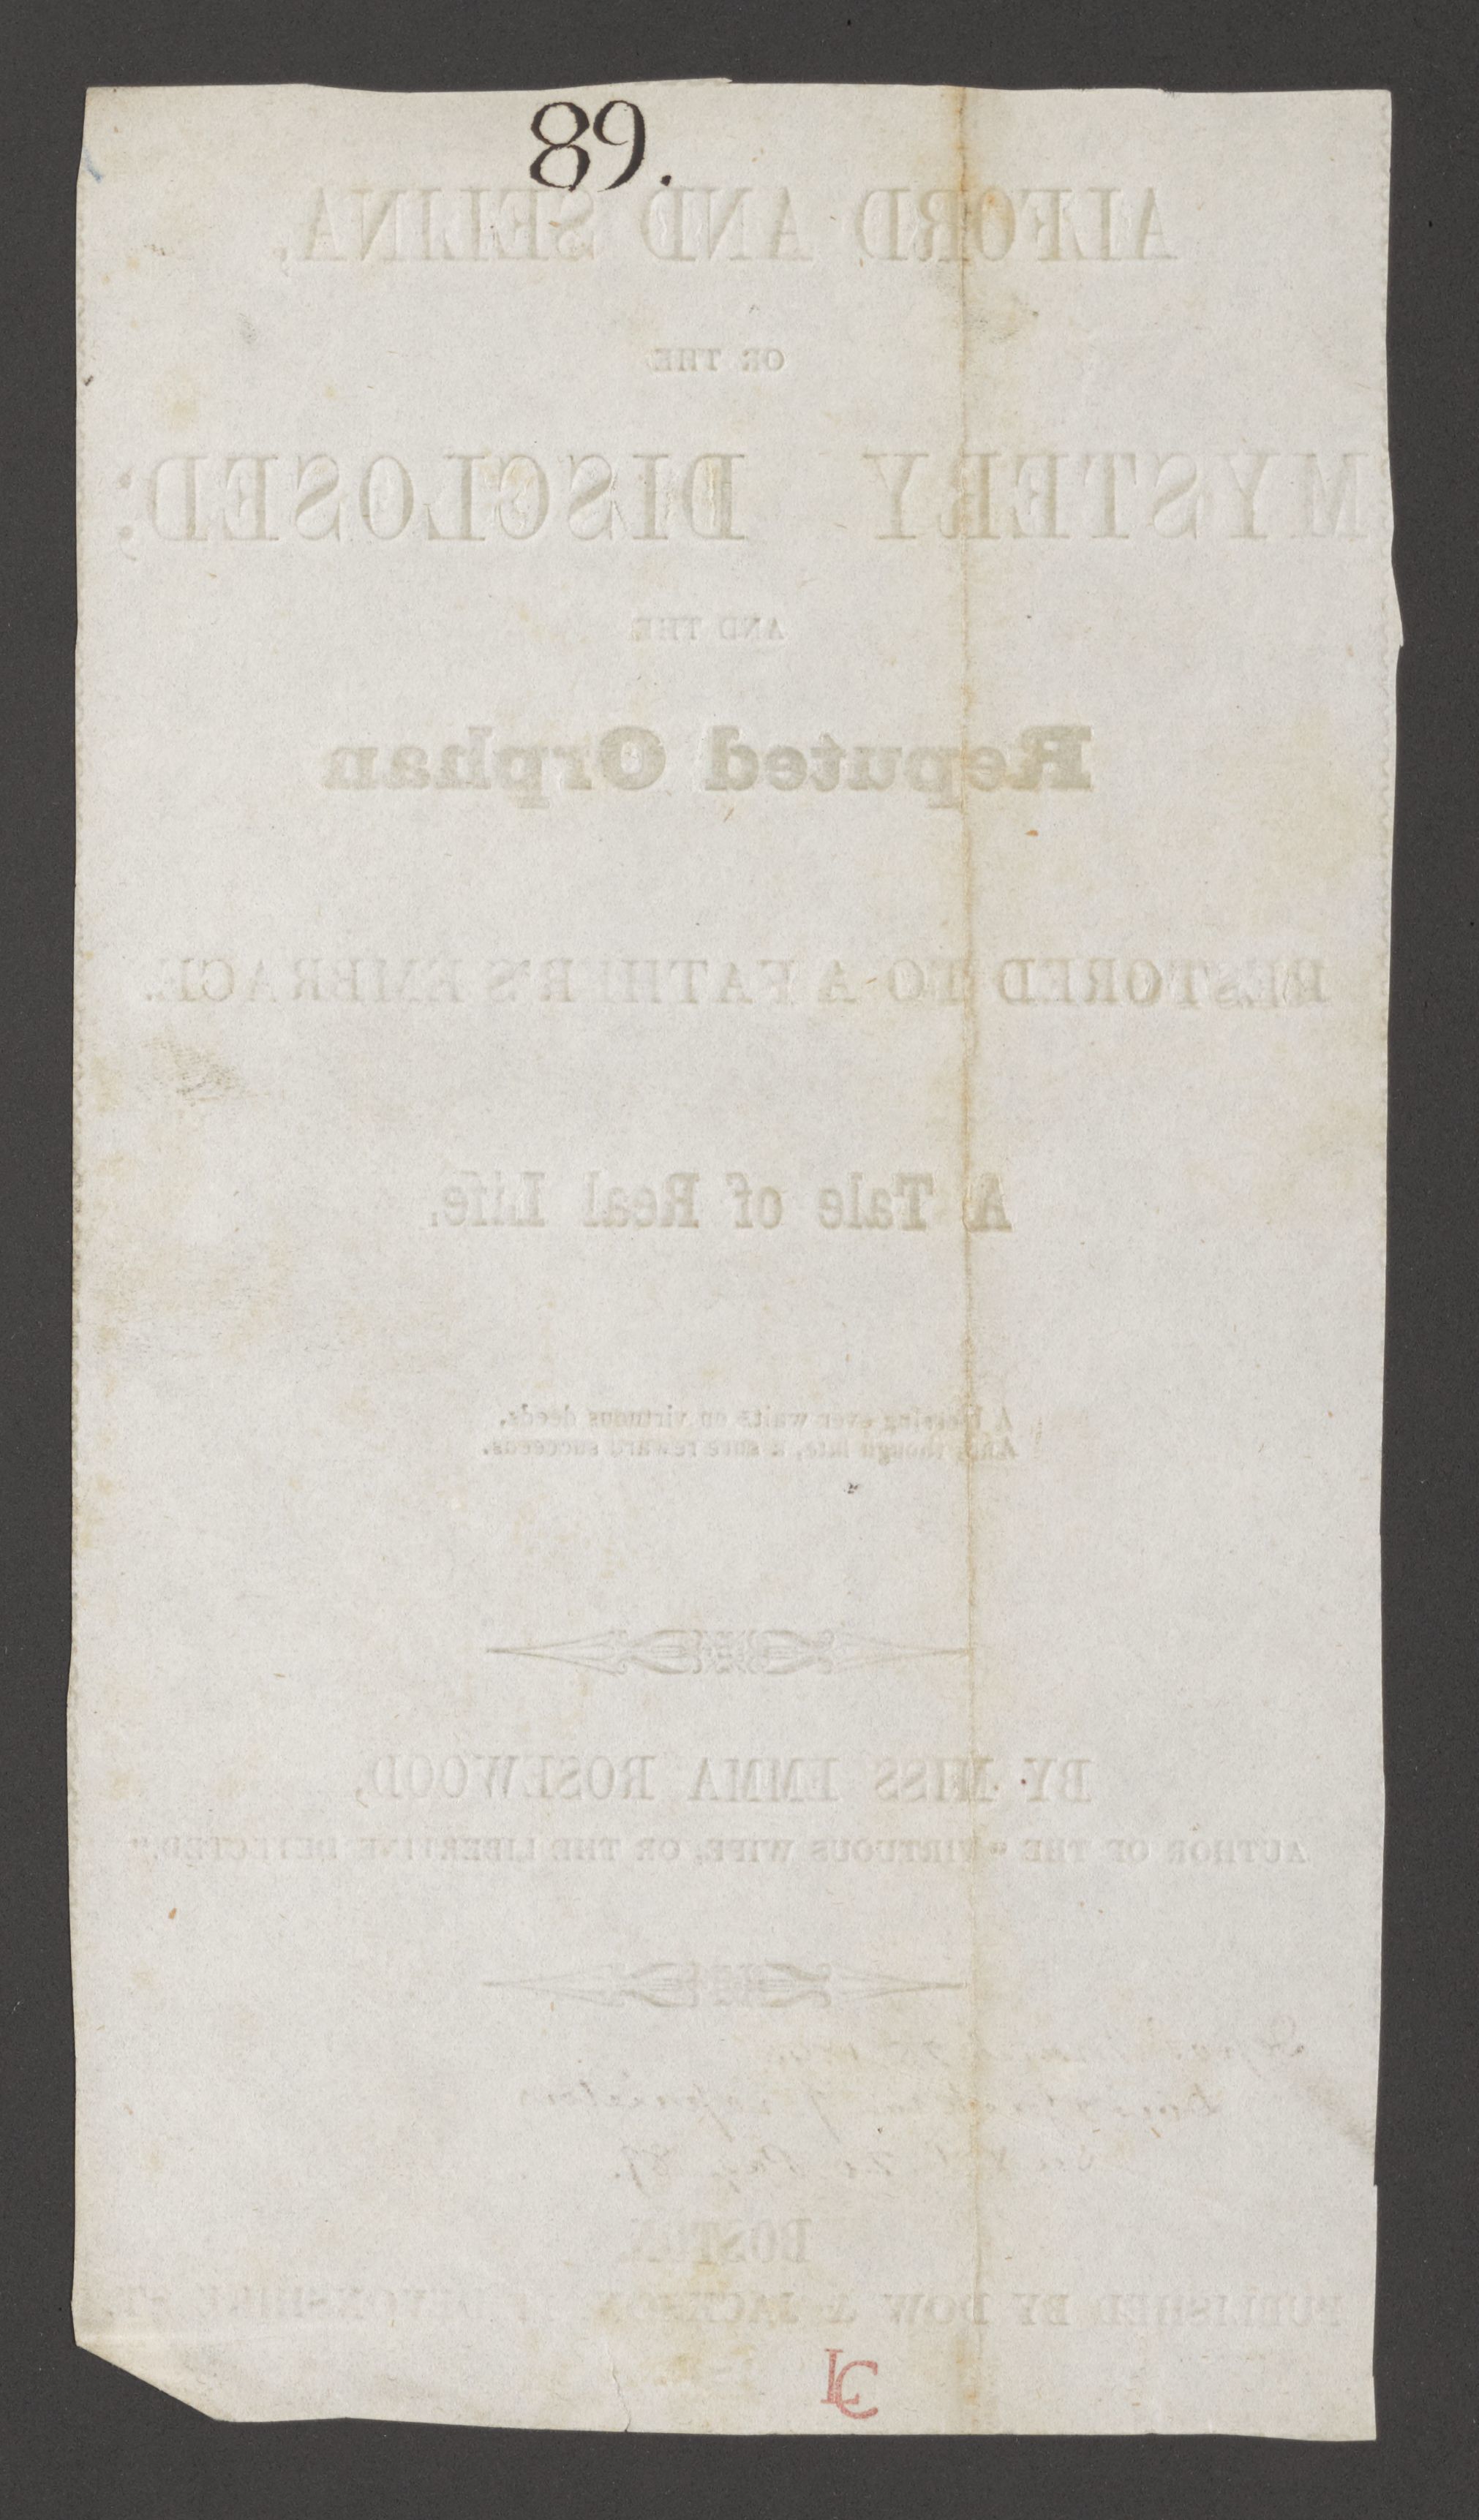 89.
ALFORD AND SELINA,
OR THE
MYSTERY DISCLOSED;
AND THE
Reputed Orphan
RESTORED TO A FATHER'S EMBRACE.
A Tale of Real Life.
A blessing ever waits on virtuous deeds,
And, though late, a sure reward succeeds.
BY MISS EMMA ROSEWOOD,
AUTHOR OF THE "VIRTUOUS WIFE, OR THE LIBERTINE DETECTED."
Vol. 20 Page 89.
BOSTON
PUBLISHED BY DOW & JACKSON DEVONSHIRE ST.
LC